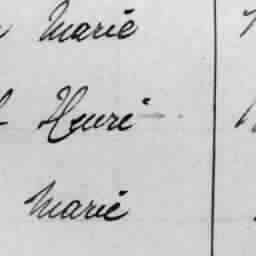 Marie
Henri
Marie